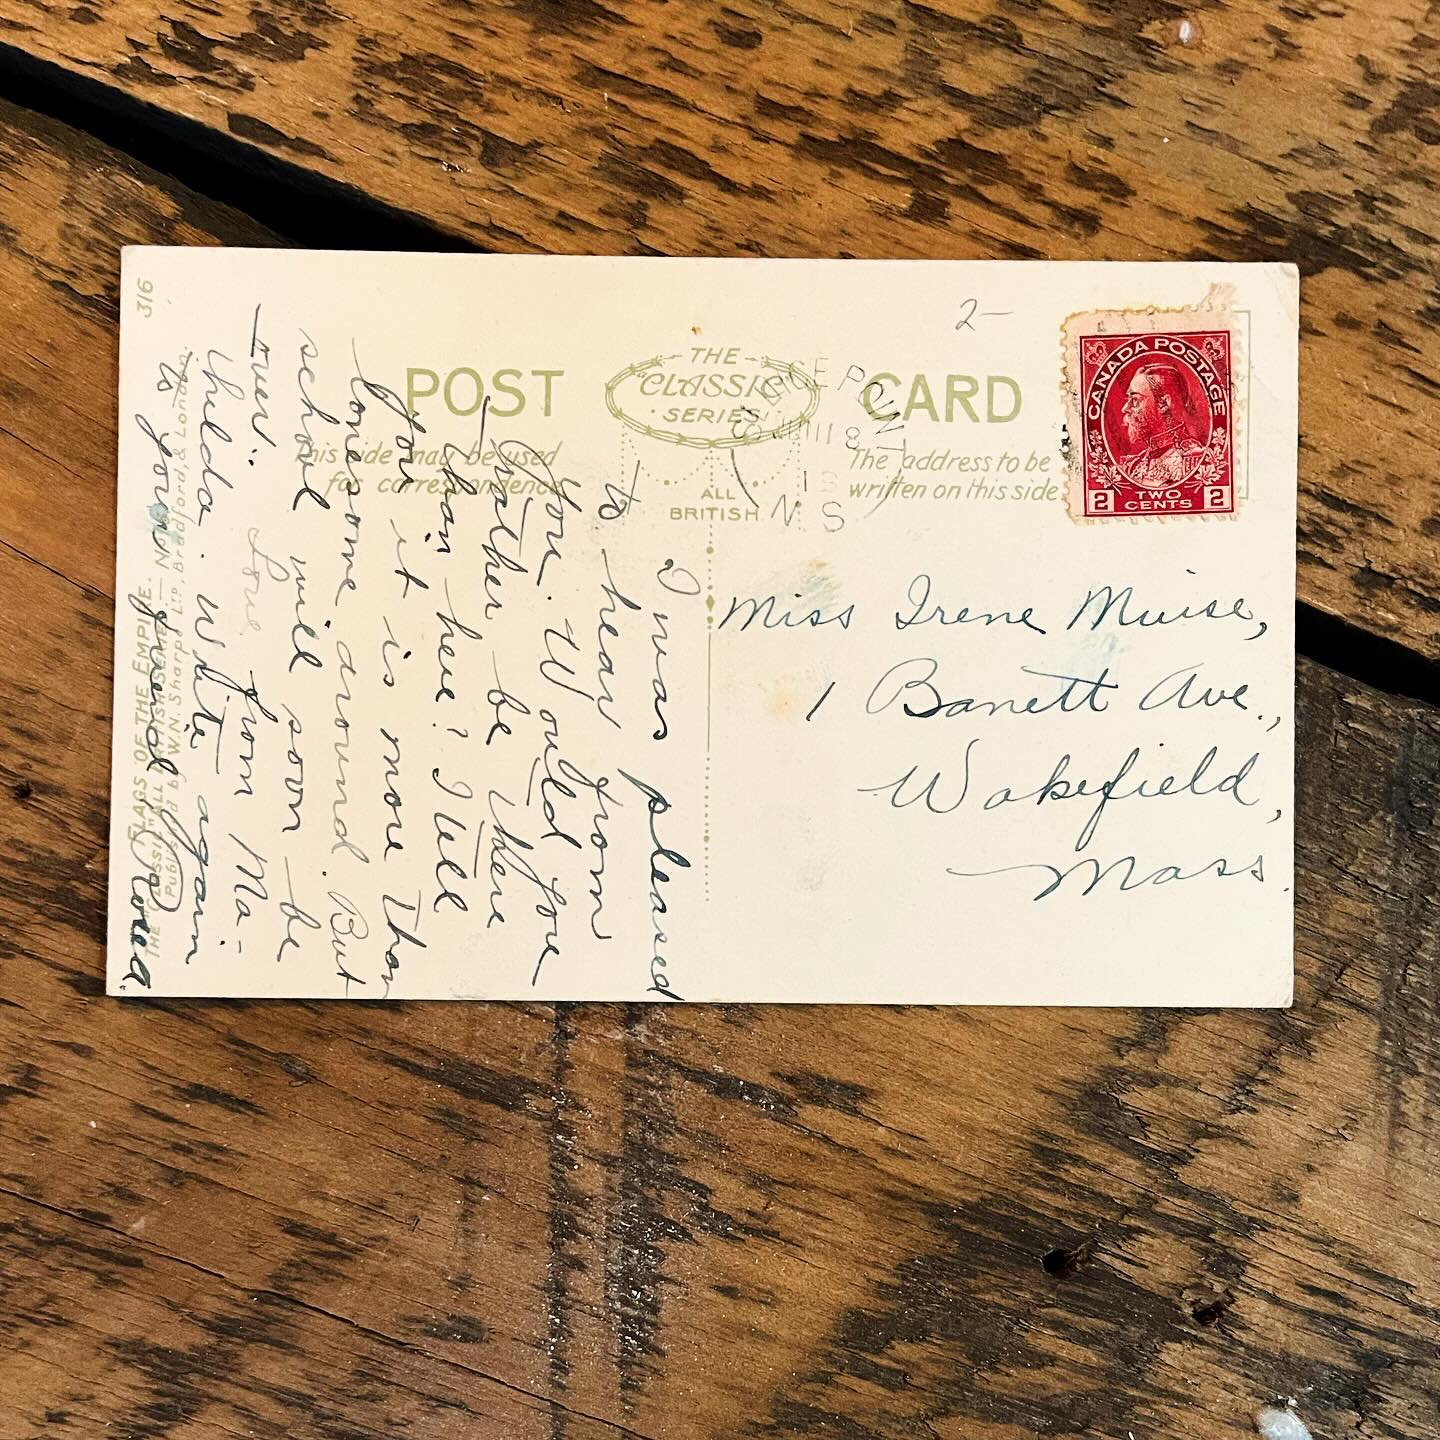 316
POST CARD
THE
CLASSIC
SERIES
This side may be used
for correspondence
The address to be
written on this side
ALL
BRITISH
2-
CANADA POSTAGE
2 TWO CENTS 2
N S
Miss Irene Muise,
1 Barrett Ave.,
Wakefield,
Mass.
I was pleased
to hear from
you. Would you
rather be there
than here? I tell
you it is more
lonesome around. But
school will soon be
over. Love from Ma-
thilda. Write again
to your friend Rosea
FLAGS OF THE EMPIRE.
THE "CLASSIC"
Published by W.N. Sharpe Ltd., Bradford, & London.